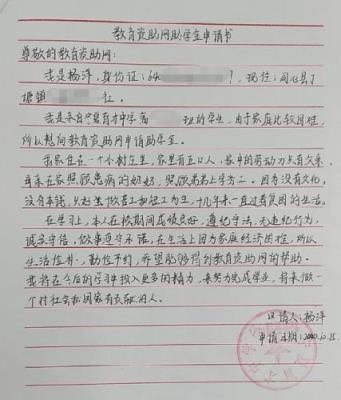 教育资助网助学金申请书
尊敬的教育资助网：
我是杨萍，身份证：64 ，现住：同心县丁
塘镇 社。
我是来自 育才中学 班的学生，由于家庭比较困难，
所以想向教育资助网申请助学金。
我家住在一个 村庄里，家里有五口人，家中的劳动力只有父亲，
母亲在家照顾患病的奶奶，照顾弟弟上学 。因为没有文化，
没有本钱，父亲 工为生，十几年来一直过着贫困的生活。
在学习上，本人在校期间成绩良好，遵纪守法，无违纪行为，
诚实守信，做事 不 ，在生活上因为家庭经济困难，所以
生活俭朴，勤俭节约，希望能够得到教育资助网的帮助。
我将在今后的学习中投入更多的精力，来努力完成学业，将来做一
个对社会和国家有贡献的人。
申请人：杨萍
申请日期：